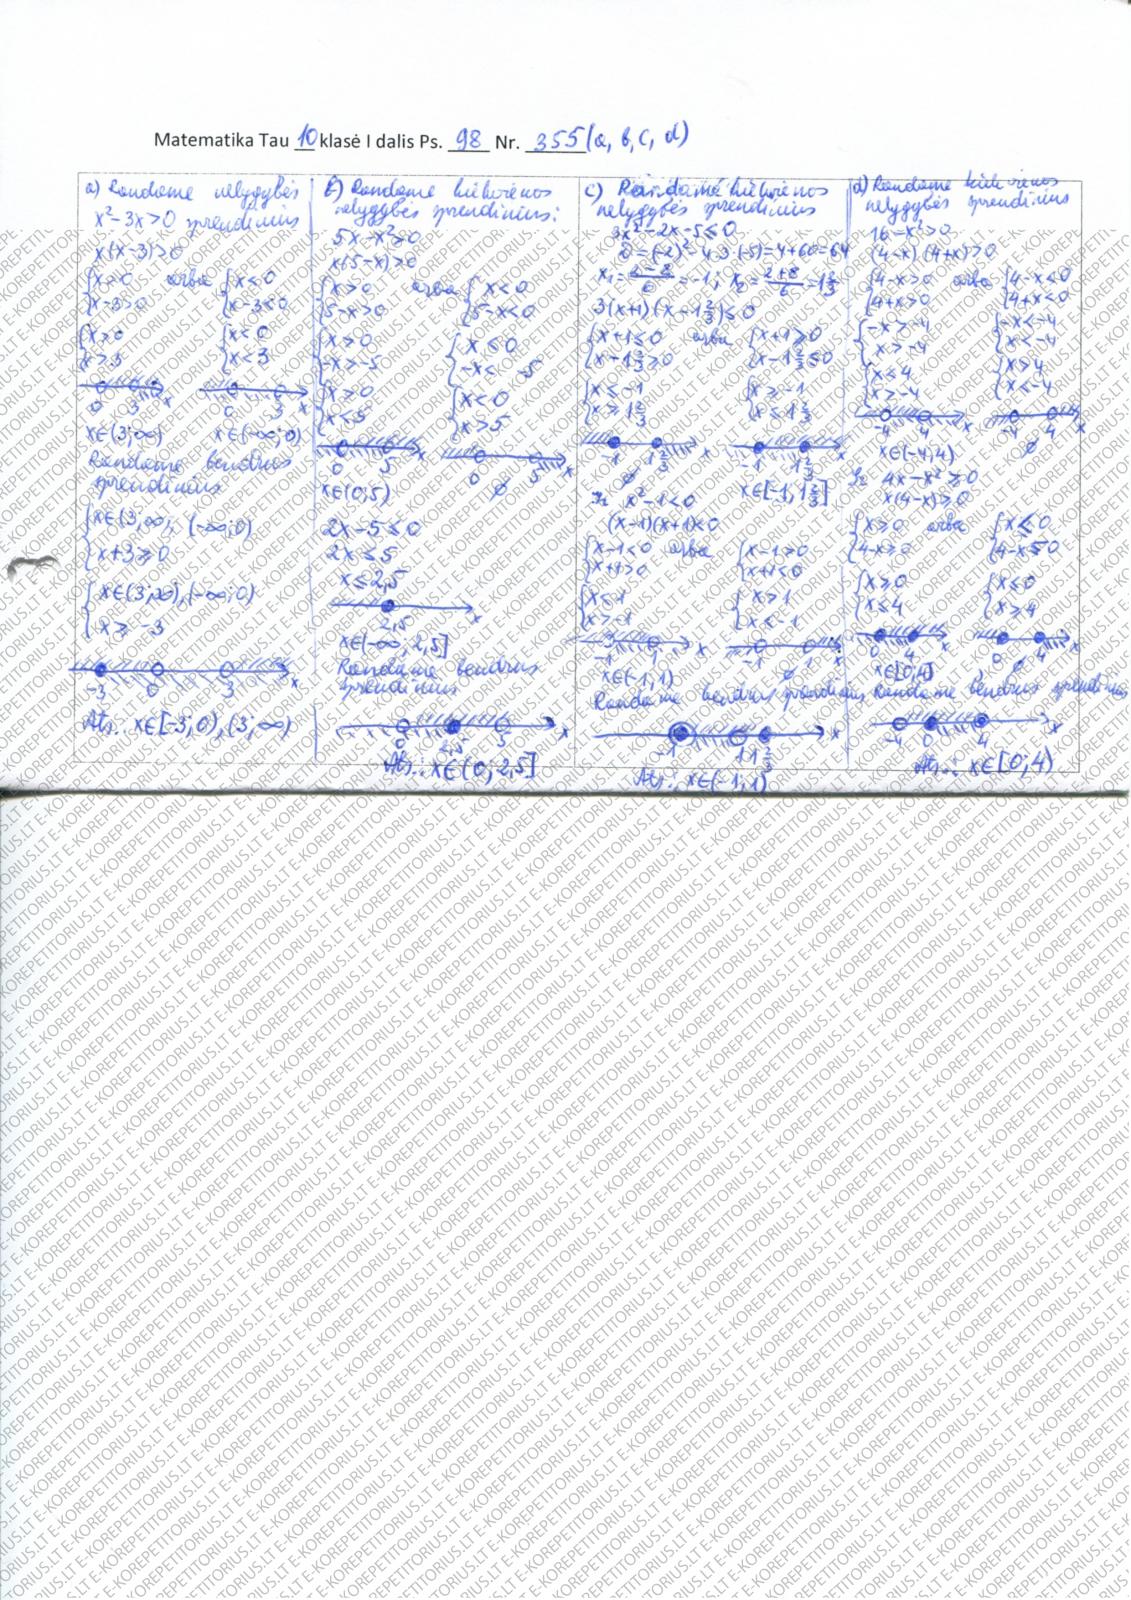 Matematika Tau 10 klasė I dalis Ps. 98 Nr. 355 (a, b, c, d)
a) Randame nelygybės
x²-3x>0 sprendinius
x(x-3)>0
{x>0 arba {x<0
{x-3>0 {x-3<0
{x>0 {x<0
{x>3 {x<3
0 3 x 0 3 x
x∈(3;∞) x∈(-∞;0)
Randame bendrus
sprendinius
{x∈(3;∞), (-∞;0)
{x+3≥0
{x∈(3;∞),(-∞;0)
{x≥-3
-3 0 3 x
Ats.: x∈[-3;0),(3;∞)
b) Randame kiekvienos
nelygybės sprendinius:
5x-x²>0
x(5-x)>0
{x>0 arba {x<0
{5-x>0 {5-x<0
{x>0 {x≤0
{-x>-5 {-x<-5
{x>0 {x<0
{x<5 {x>5
0 5 x 0 5 x
x∈(0;5) ∅
2x-5≤0
2x≤5
x≤2,5
2,5 x
x∈(-∞;2,5]
Randame bendrus
sprendinius
0 2,5 5 x
Ats.: x∈(0;2,5]
c) Randame kiekvienos
nelygybės sprendinius
3x²-2x-5≤0
D=(-2)²-4·3·(-5)=4+60=64
x₁=(2-8)/6=-1; x₂=(2+8)/6=1 2/3
3(x+1)(x-1 2/3)≤0
{x+1≤0 arba {x+1≥0
{x-1 2/3≥0 {x-1 2/3≤0
{x≤-1 {x≥-1
{x≥1 2/3 {x≤1 2/3
-1 1 2/3 x -1 1 2/3 x
∅ x∈[-1;1 2/3]
Ir x²-1<0
(x-1)(x+1)<0
{x-1<0 arba {x-1>0
{x+1>0 {x+1<0
{x<1 {x>1
{x>-1 {x<-1
-1 1 x -1 1 x
x∈(-1;1) ∅
Randame bendrus sprendinius
-1 1 1 2/3 x
Ats.: x∈(-1;1)
d) Randame kiekvienos
nelygybės sprendinius
16-x²>0
(4-x)(4+x)>0
{4-x>0 arba {4-x<0
{4+x>0 {4+x<0
{-x>-4 {-x<-4
{x>-4 {x<-4
{x≤4 {x>4
{x>-4 {x<-4
-4 4 x -4 4 x
x∈(-4;4) ∅
Ir 4x-x²≥0
x(4-x)≥0
{x≥0 arba {x≤0
{4-x≥0 {4-x≤0
{x≥0 {x≤0
{x≤4 {x≥4
0 4 x 0 4 x
x∈[0;4] ∅
Randame bendrus sprendinius
-4 0 4 x
Ats.: x∈[0;4)
E-KOREPETITORIUS.LT